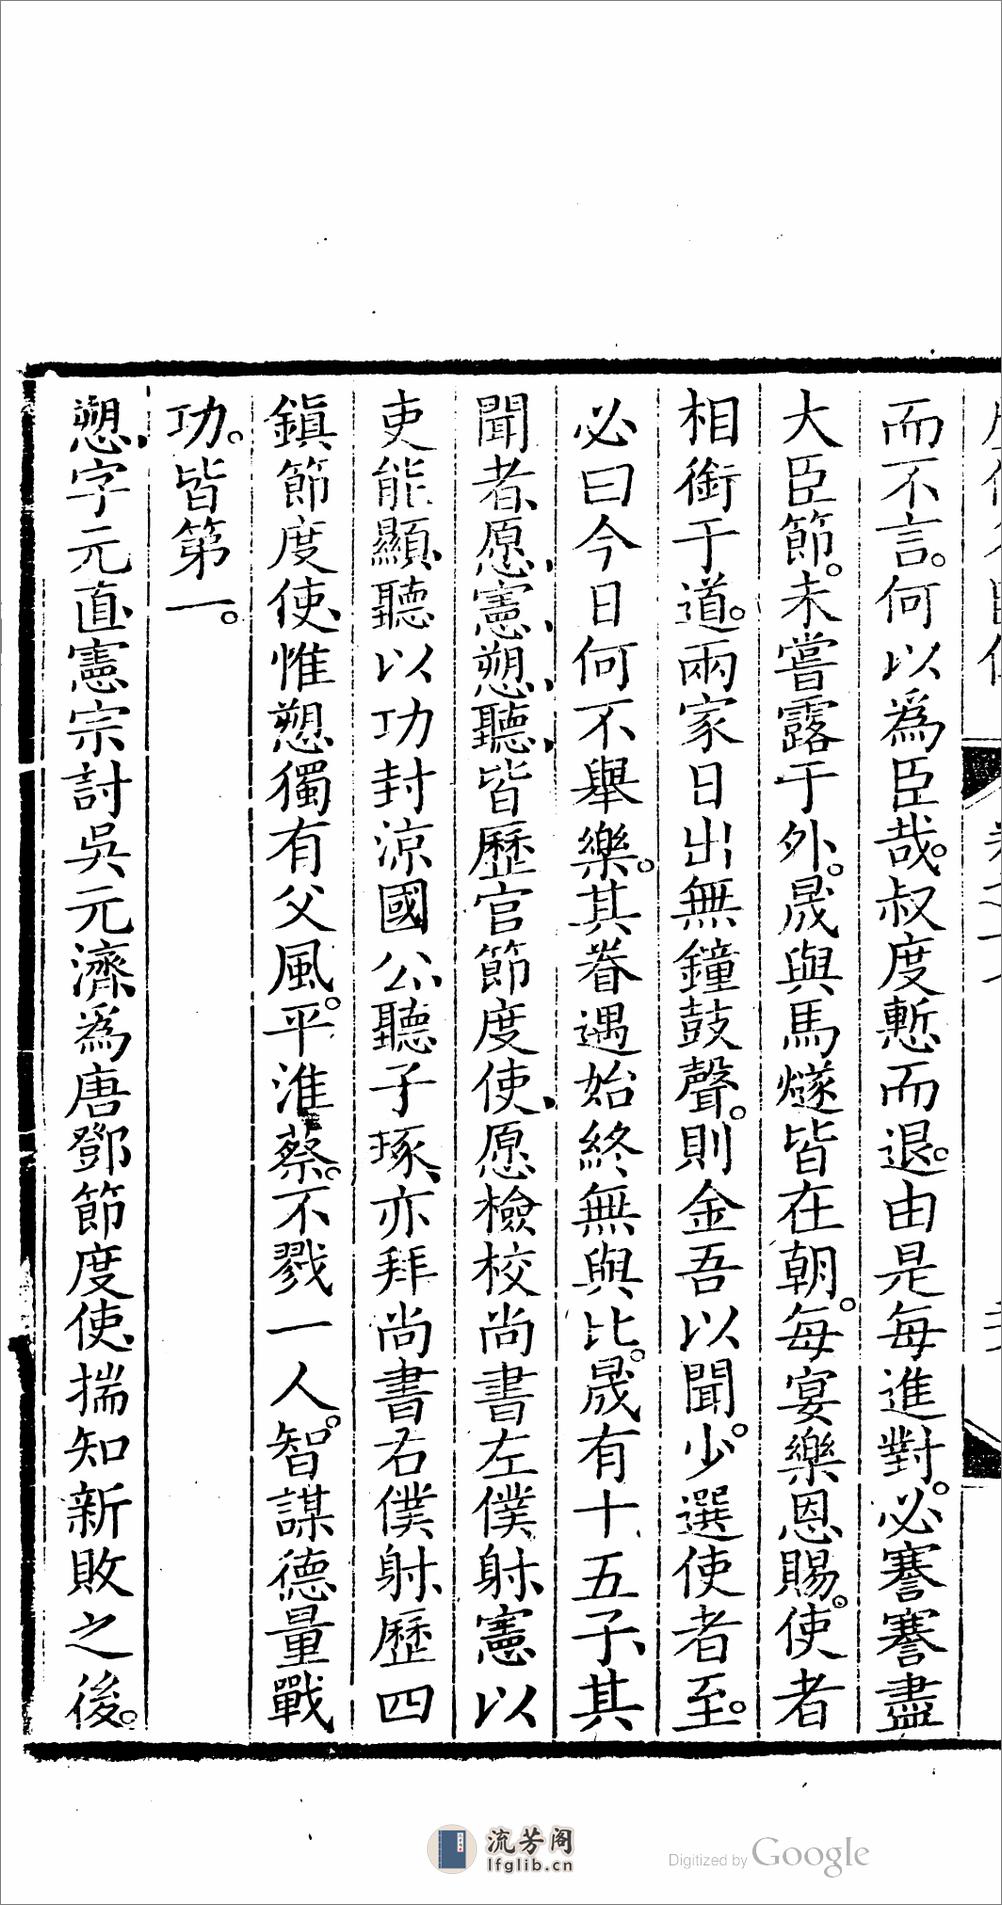 而不言。何以爲臣哉。叔度慙而退。由是每進對。必謇謇盡
大臣節。未嘗露于外。晟與馬燧皆在朝。每宴樂恩賜。使者
相銜于道。兩家日出無鐘鼓聲。則金吾以聞。少選使者至。
必曰今日何不舉樂。其眷遇始終無與比。晟有十五子、其
聞者、愿、憲、愬、聽、皆歷官節度使、愿檢校尚書左僕射、憲以
吏能顯、聽以功封涼國公、聽子琢、亦拜尚書右僕射、歷四
鎮節度使、惟愬獨有父風。平淮蔡。不戮一人。智謀德量戰
功。皆第一。
愬、字元直、憲宗討吳元濟、爲唐鄧節度使、揣知新敗之後。
流芳阁
lfglib.cn
Digitized by Google